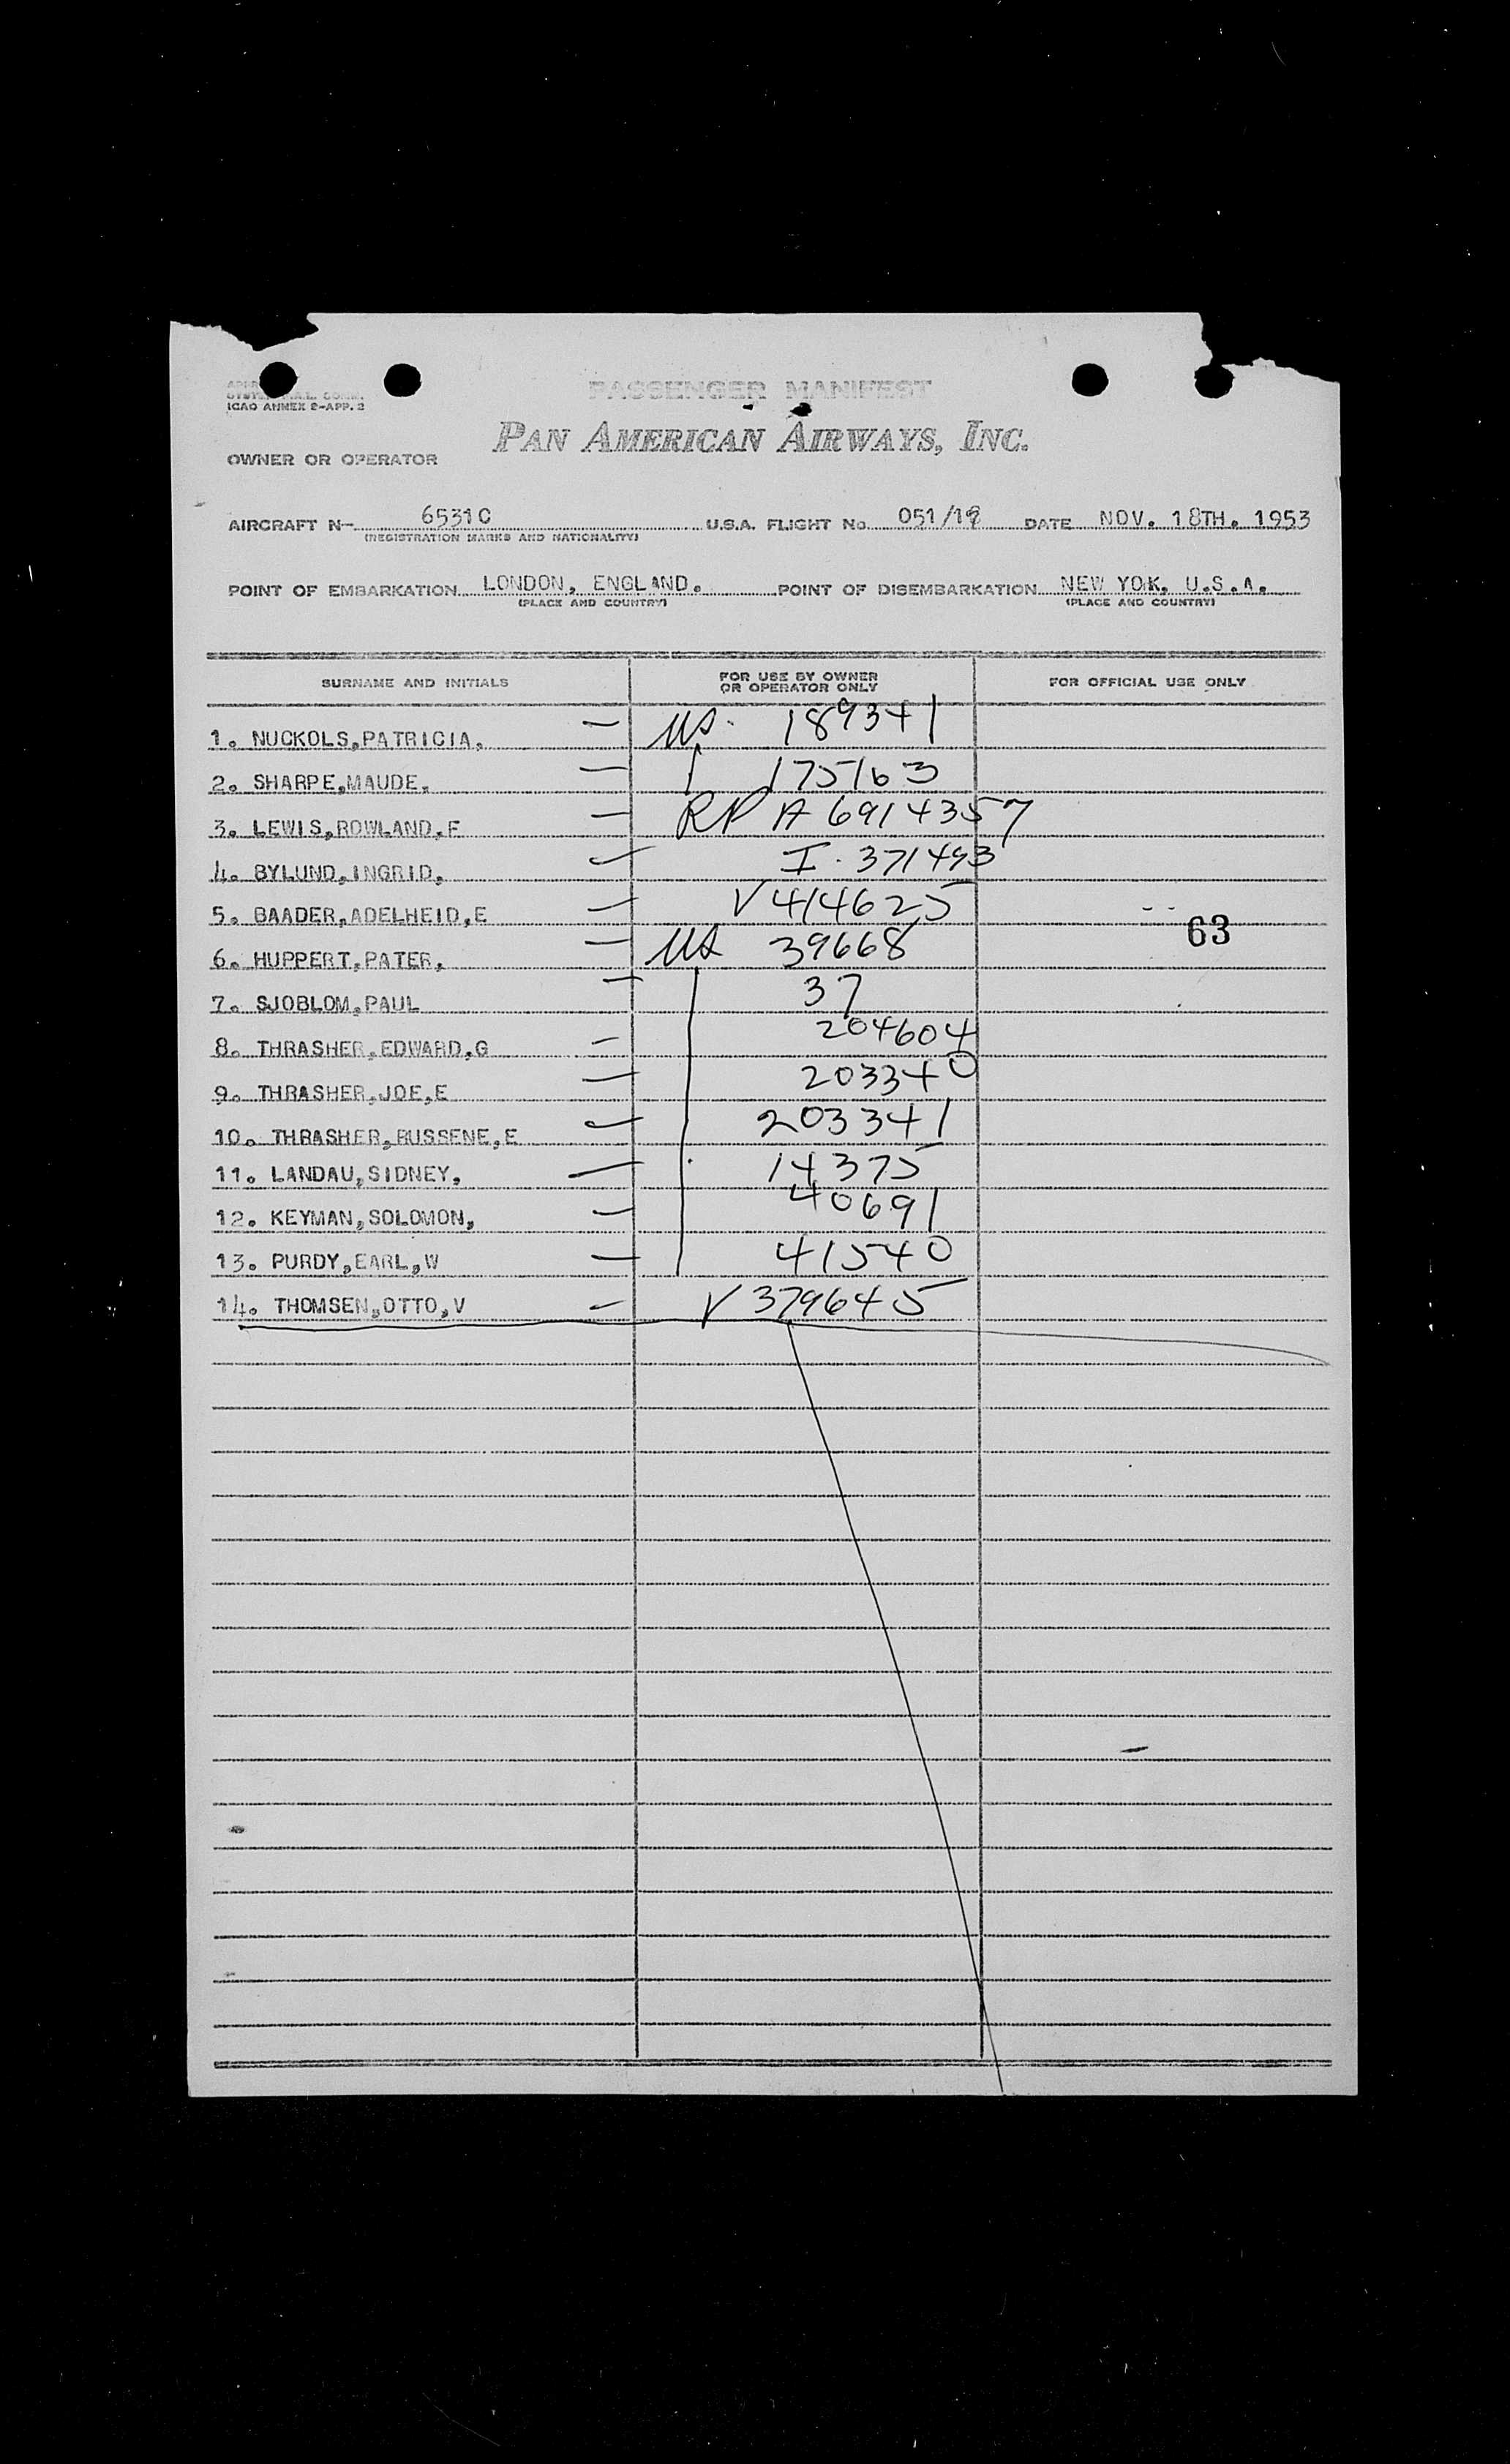 PASSENGER MANIFEST
ICAO ANNEX 9-APP. 2
PAN AMERICAN AIRWAYS, INC.
OWNER OR OPERATOR
AIRCRAFT N- 6531C U.S.A. FLIGHT No. 051/18 DATE NOV. 18TH. 1953
(REGISTRATION MARKS AND NATIONALITY)
POINT OF EMBARKATION LONDON, ENGLAND. POINT OF DISEMBARKATION NEW YOK, U.S.A.
(PLACE AND COUNTRY) (PLACE AND COUNTRY)
SURNAME AND INITIALS FOR USE BY OWNER OR OPERATOR ONLY FOR OFFICIAL USE ONLY
1. NUCKOLS,PATRICIA, — US. 189341
2. SHARPE,MAUDE, — 175163
3. LEWIS,ROWLAND,F — RP A 6914357
4. BYLUND,INGRID, I. 371493
5. BAADER,ADELHEID,E — V 414625
63
6. HUPPERT,PATER, — US 39668
7. SJOBLOM,PAUL — 37
8. THRASHER,EDWARD,G — 204604
9. THRASHER,JOE,E — 203340
10. THRASHER,RUSSENE,E — 203341
11. LANDAU,SIDNEY, — 14375
12. KEYMAN,SOLOMON, — 40691
13. PURDY,EARL,W — 41540
14. THOMSEN,OTTO,V — V 379645